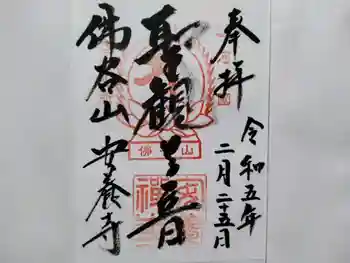 奉拝
令和五年
二月二五日
聖観世音
佛谷山
安養寺